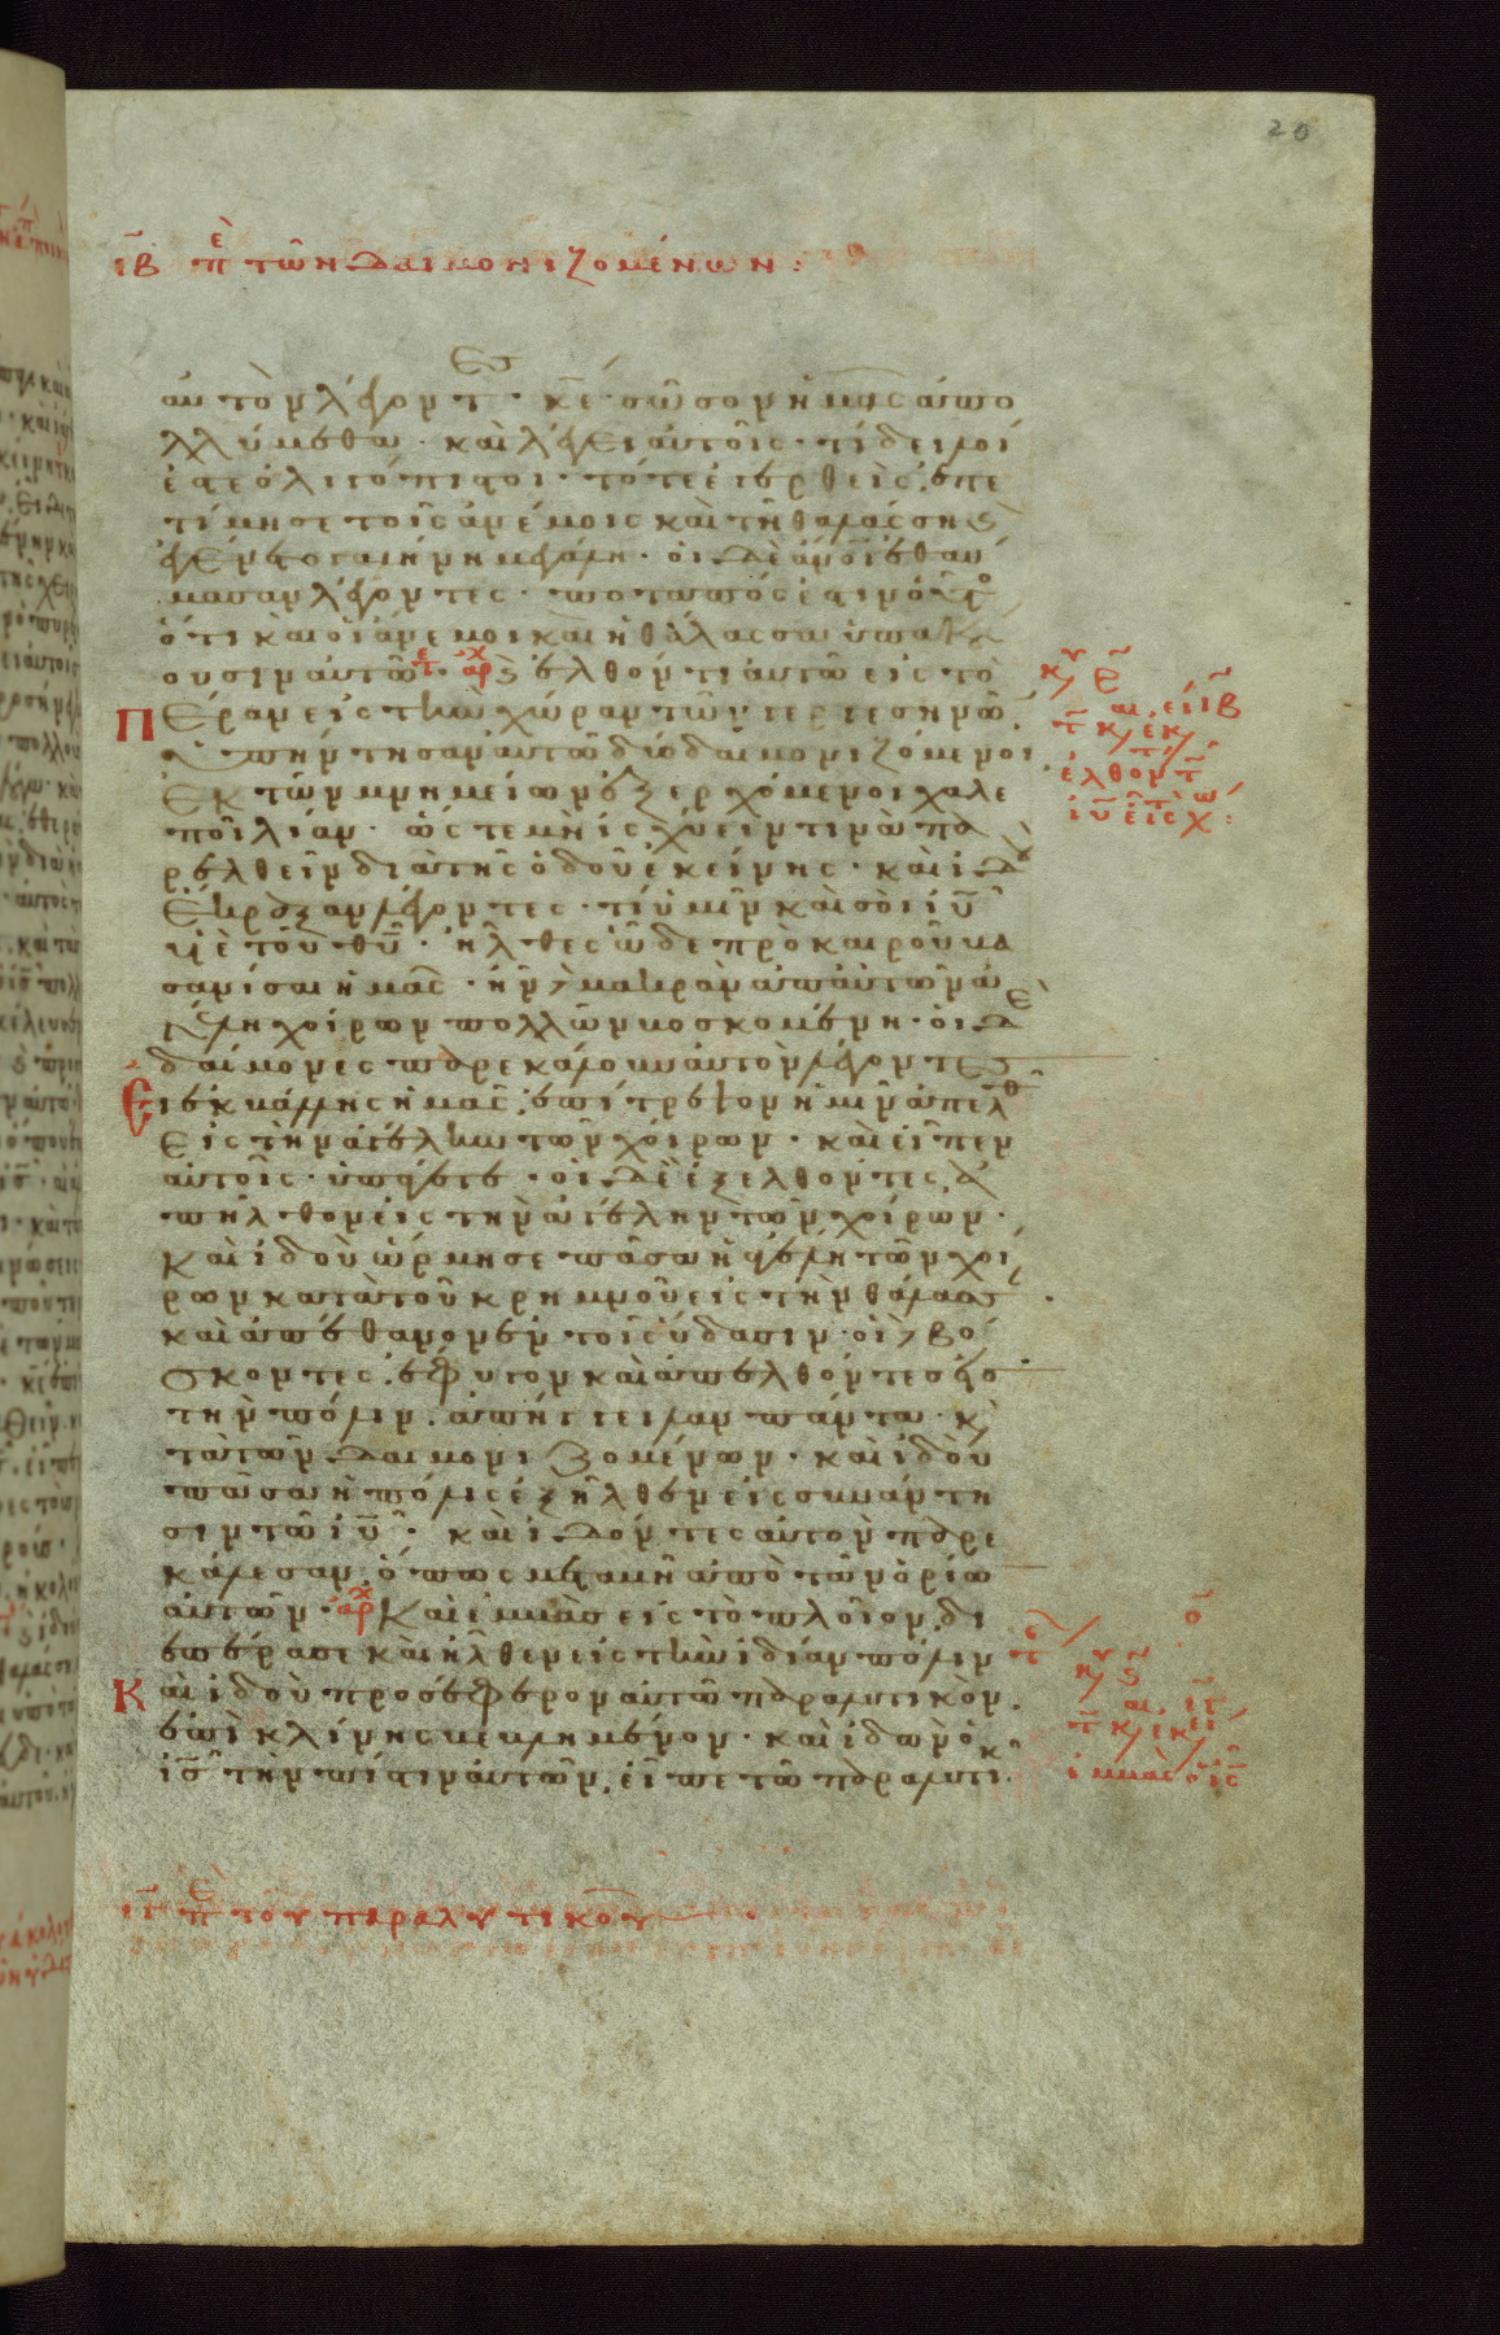 20
ιβ πε τῶν δαιμονιζομένων :
αυτὸν λέγοντες · κε σῶσον ἡμᾶς ἀπο
λλύμεθα · καὶ λέγει αὐτοῖς · τί δειλοί
ἐστε ὀλιγόπιστοι · τότε ἐγερθεὶς, ἐπε
τίμησε τοῖς ἀνέμοις καὶ τῆ θαλάσση ϗ
ἐγένετο γαλήνη μεγάλη · οἱ δὲ ἄνοι ἐθαύ
μασαν λέγοντες · ποταπός ἐστιν οὗτος
ὅτι καὶ οἱ ἄνεμοι καὶ ἡ θάλασσα ὑπακ
ουσιν αὐτῶ · τε αρχ ϗ ἐλθόντι αὐτῶ εἰς τὸ
Πέραν εἰς τὴν χώραν τῶν γεργεσηνῶ
ὑπήντησαν αὐτῶ δύο δαιμονιζόμενοι
ἐκ τῶν μνημείων ἐξερχόμενοι χαλε
ποὶ λίαν · ὥστε μὴ ἰσχύειν τινὰ πα
ρελθεῖν διὰ τῆς ὁδοῦ ἐκείνης · καὶ ἰδου
ἔκραξαν λέγοντες · τί ἡμῖν καὶ σοὶ ιυ
υἱὲ τοῦ θυ · ἦλθες ὧδε πρὸ καιροῦ βα
σανίσαι ἡμᾶς · ἦν δὲ μακρὰν ἀπ αὐτῶν ἀ
γέλη χοίρων πολλῶν βοσκομένη · οἱ δὲ
δαίμονες παρεκάλουν αὐτὸν λέγοντες
Εἰ ἐκβάλλης ἡμᾶς, ἐπίτρεψον ἡμῖν ἀπελθ
εἰς τὴν ἀγέλην τῶν χοίρων · καὶ εἶπεν
αὐτοῖς · ὑπάγετε · οἱ δὲ ἐξελθόντες, ἀ
πῆλθον εἰς τὴν ἀγέλην τῶν χοίρων ·
Καὶ ἰδοὺ ὥρμησε πᾶσα ἡ ἀγέλη τῶν χοί
ρων κατὰ τοῦ κρημνοῦ εἰς τὴν θάλασσ ·
καὶ ἀπέθανον ἐν τοῖς ὕδασιν · οἱ δὲ βό
σκοντες, ἔφυγον καὶ ἀπελθόντες εἰς
τὴν πόλιν, ἀπήγγειλαν πάντα · ϗ
τὰ τῶν δαιμονιζομένων · καὶ ἰδοὺ
πᾶσα ἡ πόλις ἐξῆλθεν εἰς συνάντη
σιν τῶ ιυ · καὶ ἰδόντες αὐτὸν παρε
κάλεσαν, ὅπως μεταβῆ ἀπὸ τῶν ὁρίω
αὐτῶν · αρχ Καὶ ἐμβὰς εἰς τὸ πλοῖον, δι
επέρασε καὶ ἦλθεν εἰς τὴν ἰδίαν πόλιν τε
Καὶ ἰδοὺ προσέφερον αὐτῶ παραλυτικὸν,
ἐπὶ κλίνης βεβλημένον · καὶ ἰδὼν ὁ
ις τὴν πίστιν αὐτῶν, εἶπε τῶ παραλυτικ
κυ ε
ἐλθοντ
ιυ εις τ χω :
κυ ς
ἐμβὰς ὁ ις
ιγ πε τοῦ παραλυτικοῦ